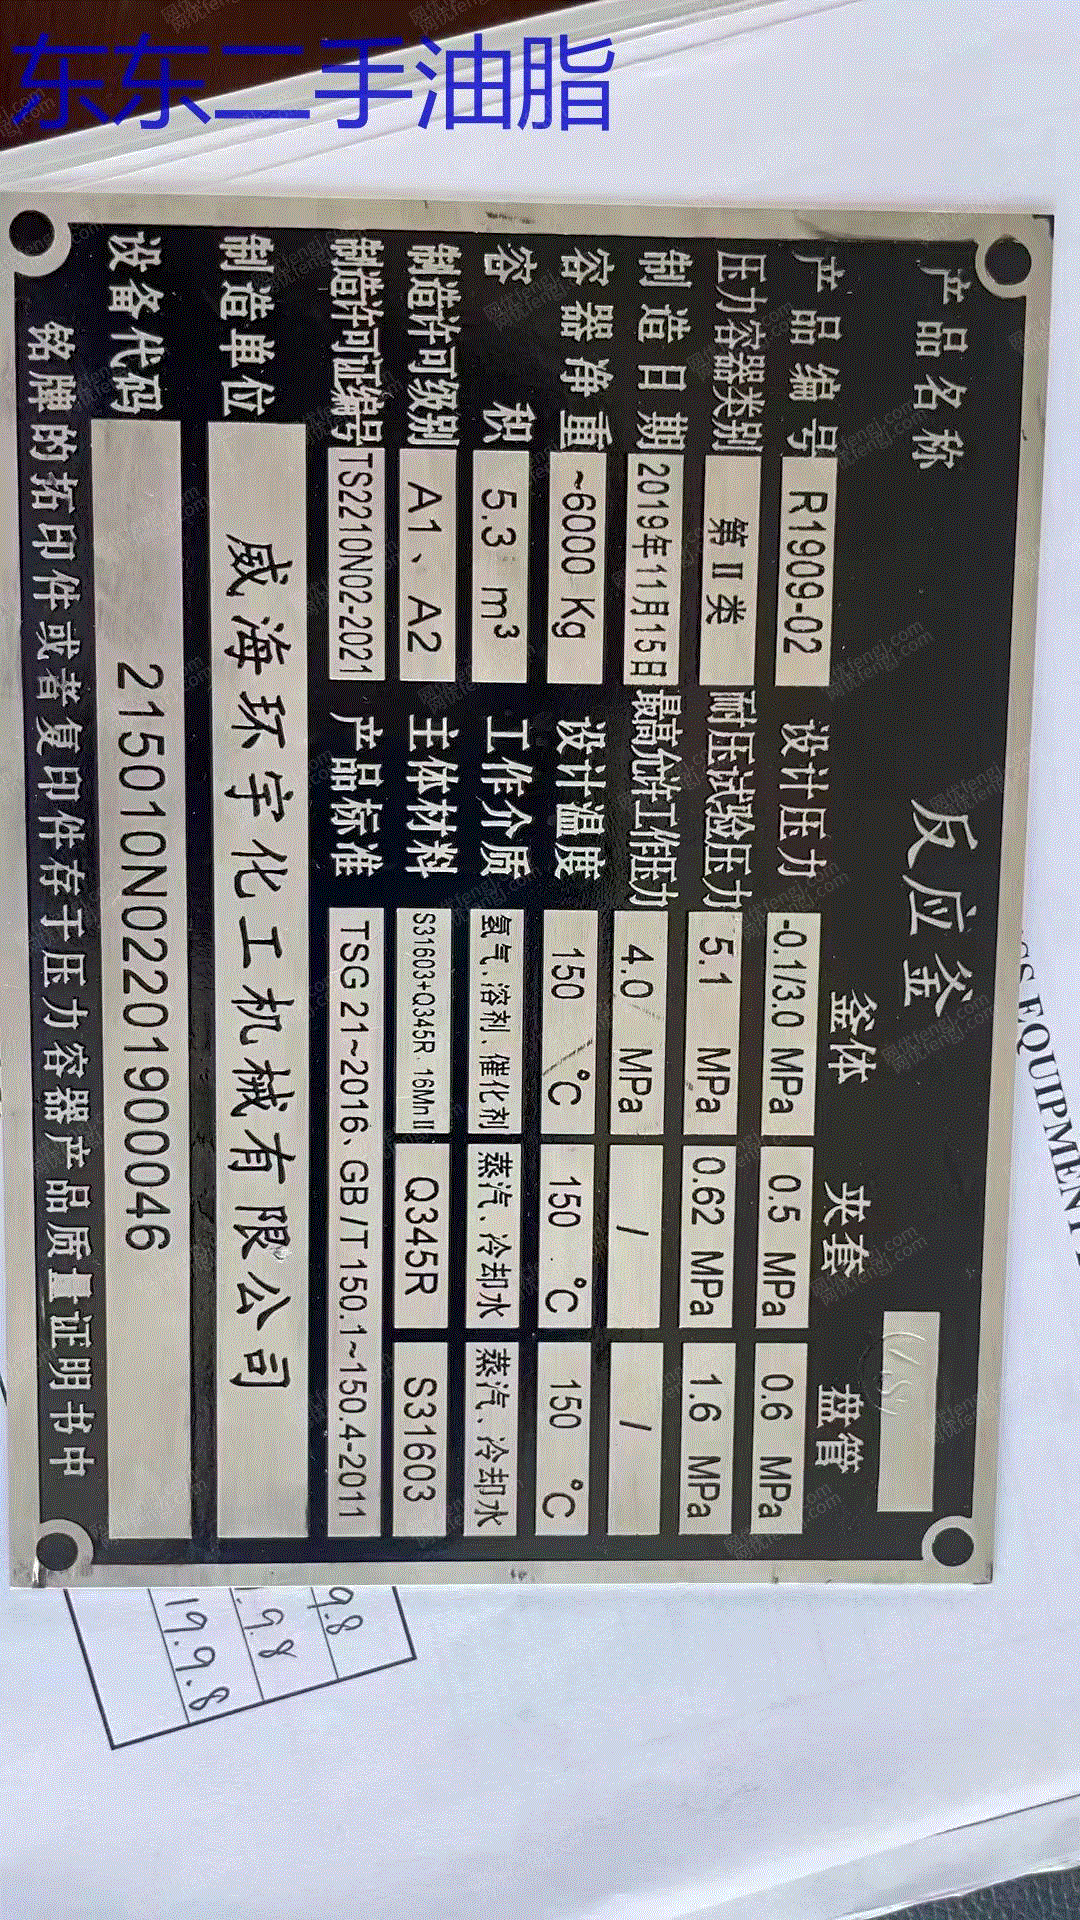 东东二手油脂
产品名称 反应釜
釜体 夹套 盘管
产品编号 R1909-02 设计压力 -0.1/3.0 MPa 0.5 MPa 0.6 MPa
压力容器类别 第Ⅱ类 耐压试验压力 5.1 MPa 0.62 MPa 1.6 MPa
制造日期 2019年11月15日 最高允许工作压力 4.0 MPa / /
容器净重 ~6000 Kg 设计温度 150 ℃ 150 ℃ 150 ℃
容积 5.3 m³ 工作介质 氢气、溶剂、催化剂 蒸汽、冷却水 蒸汽、冷却水
制造许可级别 A1、A2 主体材料 S31603+Q345R 16MnⅡ Q345R S31603
制造许可证编号 TS2210N02-2021 产品标准 TSG 21~2016、GB/T 150.1~150.4-2011
制造单位 威海环宇化工机械有限公司
设备代码 215010N0220190046
铭牌的拓印件或者复印件存于压力容器产品质量证明书中
EQUIPMENT
9.8
.9.8
19.9.8
网优fengj.com